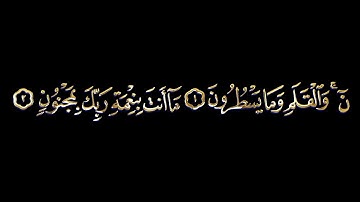 نٓ ۚ وَالْقَلَمِ وَمَا يَسْطُرُونَ ۝١ مَآ أَنتَ بِنِعْمَةِ رَبِّكَ بِمَجْنُونٍ ۝٢